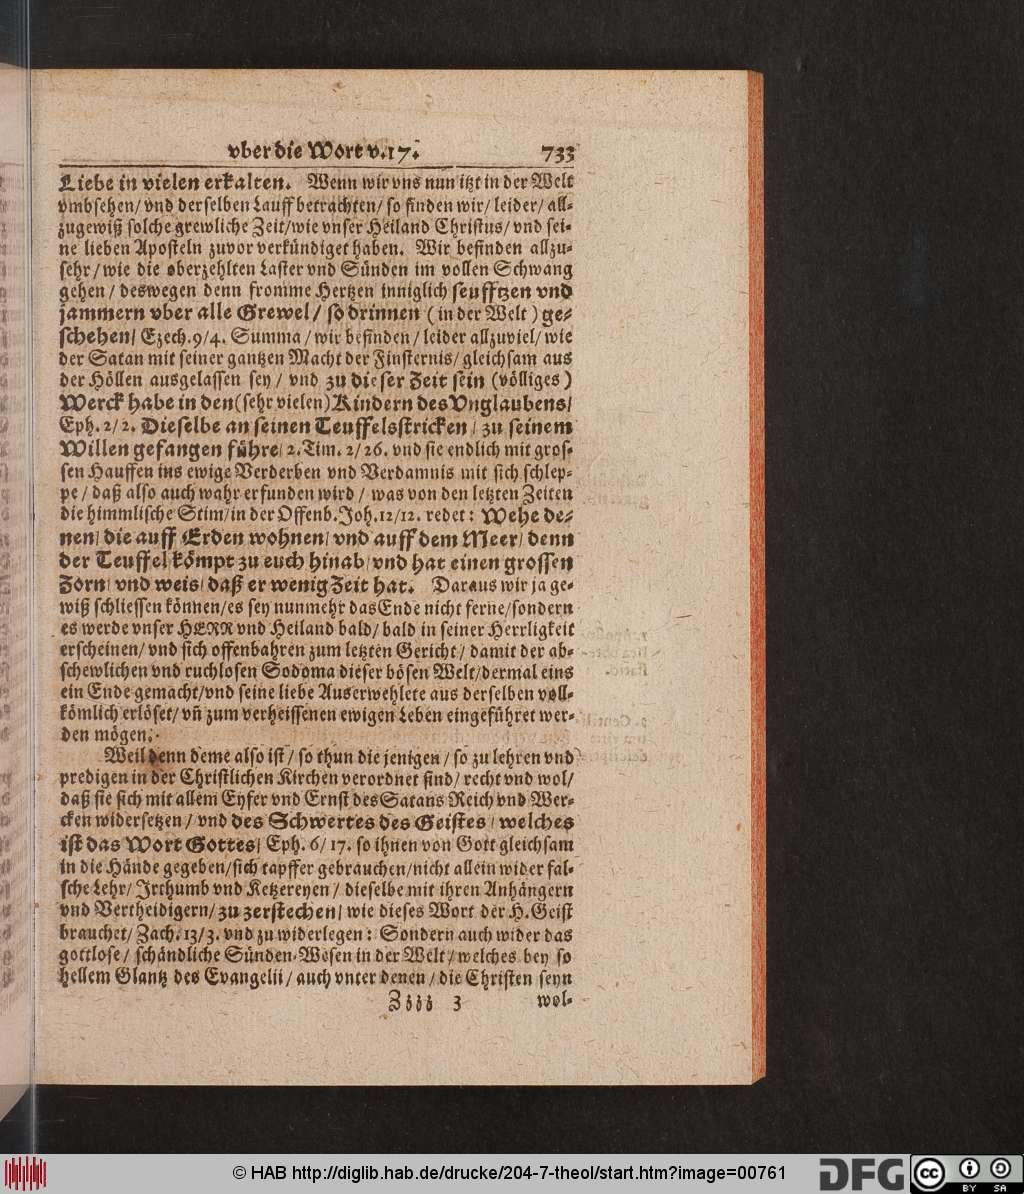 vber die Wort v. 17. 733
Liebe in vielen erkalten. Wenn wir vns nun itzt in der Welt
vmbsehen/ vnd derselben Lauff betrachten/ so finden wir/ leider/ all-
zugewiß solche grewliche Zeit/ wie vnser Heiland Christus/ vnd sei-
ne lieben Aposteln zuvor verkündiget haben. Wir befinden allzu-
sehr/ wie die oberzehlten Laster vnd Sünden im vollen Schwang
gehen/ deswegen denn fromme Hertzen inniglich seufftzen vnd
jammern vber alle Grewel/ so drinnen (in der Welt) ge-
schehen/ Ezech. 9/4. Summa/ wir befinden/ leider allzuviel/ wie
der Satan mit seiner gantzen Macht der Finsternis/ gleichsam aus
der Höllen ausgelassen sey/ vnd zu dieser Zeit sein (völliges)
Werck habe in den (sehr vielen) Kindern des Vnglaubens/
Eph. 2/2. Dieselbe an seinen Teuffelsstricken/ zu seinem
Willen gefangen führe/ 2. Tim. 2/26. vnd sie endlich mit gros-
sen Hauffen ins ewige Verderben vnd Verdamnis mit sich schlep-
pe/ daß also auch wahr erfunden wird/ was von den letzten Zeiten
die himmlische Stim/ in der Offenb. Joh. 12/12. redet: Wehe de-
nen/ die auff Erden wohnen/ vnd auff dem Meer/ denn
der Teuffel kömpt zu euch hinab/ vnd hat einen grossen
Zorn/ vnd weis/ daß er wenig Zeit hat. Daraus wir ja ge-
wiß schliessen können/ es sey nunmehr das Ende nicht ferne/ sondern
es werde vnser HERR vnd Heiland bald/ bald in seiner Herrligkeit
erscheinen/ vnd sich offenbahren zum letzten Gericht/ damit der ab-
schewlichen vnd ruchlosen Sodoma dieser bösen Welt/ dermal eins
ein Ende gemacht/ vnd seine liebe Auserwehlete aus derselben voll-
kömlich erlöset/ vñ zum verheissenen ewigen Leben eingeführet wer-
den mögen.
Weil denn deme also ist/ so thun die jenigen/ so zu lehren vnd
predigen in der Christlichen Kirchen verordnet sind/ recht vnd wol/
daß sie sich mit allem Eyfer vnd Ernst des Satans Reich vnd Wer-
cken widersetzen/ vnd des Schwertes des Geistes/ welches
ist das Wort Gottes/ Eph. 6/17. so ihnen von Gott gleichsam
in die Hände gegeben/ sich tapffer gebrauchen/ nicht allein wider fal-
sche Lehr/ Irthumb vnd Ketzereyen/ dieselbe mit ihren Anhängern
vnd Vertheidigern/ zu zerstechen/ wie dieses Wort der H. Geist
brauchet/ Zach. 13/3. vnd zu widerlegen: Sondern auch wider das
gottlose/ schändliche Sünden-Wesen in der Welt/ welches bey so
hellem Glantz des Evangelii/ auch vnter denen/ die Christen seyn
Zzzz 3 wol-
© HAB http://diglib.hab.de/drucke/204-7-theol/start.htm?image=00761
DFG
cc BY SA